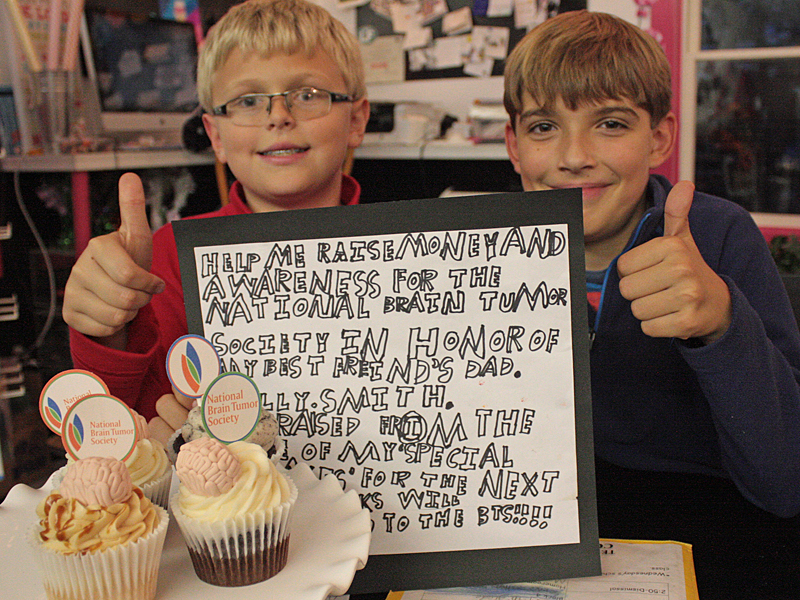 HELP ME RAISE MONEY AND
AWARENESS FOR THE
NATIONAL BRAIN TUMOR
SOCIETY IN HONOR OF
MY BEST FREIND'S DAD.
LLY. SMITH.
RAISED FROM THE
OF MY SPECIAL
FOR THE NEXT
WILL
TO THE BTS!!!!
National
Brain Tumor
Society
National
Brain Tumor
Society